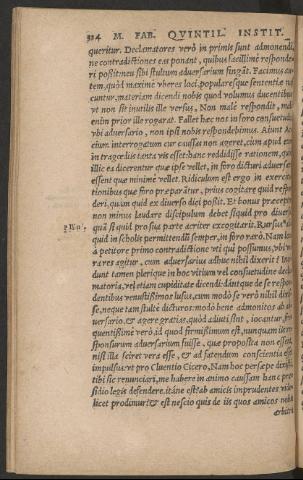 324 M. FAB. QVINTIL. INSTIT.
queritur. Declamatores verò in primis sunt admonendi,
ne contradictiones eas ponant, quibus facillimè responde
ri possit: neu sibi stultum aduersarium fingāt. Facimus au
tem, quòd maximè vberes loci, populares que sententiæ na
cuntur, materiam dicendi nobis quod volumus ducentibus:
vt non sit inutilis ille versus, Non malè respondit, malè
enim prior ille rogarat. Fallet hæc nos in foro consuetudo,
vbi aduersario, non ipsi nobis respondebimus. Aiunt Ac
cium interrogatum cur caussas non ageret, cùm apud eum
in tragœdiis tanta vis esset: hanc reddidisse rationem, quòd
illic ea dicerentur quæ ipse vellet, in foro dicturi aduersarii
essent quæ minimè vellet. Ridiculum est ergo in exercita
tionibus quæ foro præparātur, prius cogitare quid respon
deri, quàm quid ex diuerso dici possit. Et bonus præceptor
non minus laudare discipulum debet si quid pro diuersa,
quā si quid pro sua parte acriter excogitarit. Rursus
quid in scholis permittendū semper, in foro rarò. Nam loco
à petitore primo contradictione vti quî possumus, vbi ve
ra res agitur, cum aduersarius adhuc nihil dixerit? In
dunt tamen plerique in hoc vitium vel consuetudine decla
matoria, vel etiam cupiditate dicendi: dántque de se respon
dentibus venustissimos lusus, cum modò se verò nihil dixis
se, neque tam stultè dicturos: modò benè admonitos ab ad
uersario, & agere gratias, quòd adiuti sint, iocantur, fre
quentissimè verò, id quod firmissimum est, nunquam iis re
sponsurum aduersarium fuisse, quæ proposita non essent,
nisi illa sciret vera esse, & ad fatendum conscientia esset
impulsus: vt pro Cluentio Cicero, Nam hoc persæpe dixisti,
tibi sic renunciari, me habere in animo caussam hanc præ
sidio legis defendere. itáne est? ab amicis imprudentes vide
licet prodimur: & est nescio quis de iis quos amicos nobis
arbitra